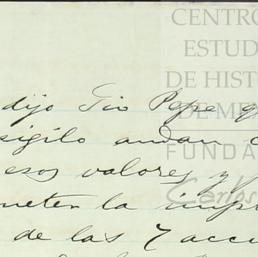 CENTRO
ESTUD
DE HISTO
DE ME
FUNDA
Carlos
dijo Tio Pepe q
sigilo andan
esos valores y
meten la imp
de las 7 acci